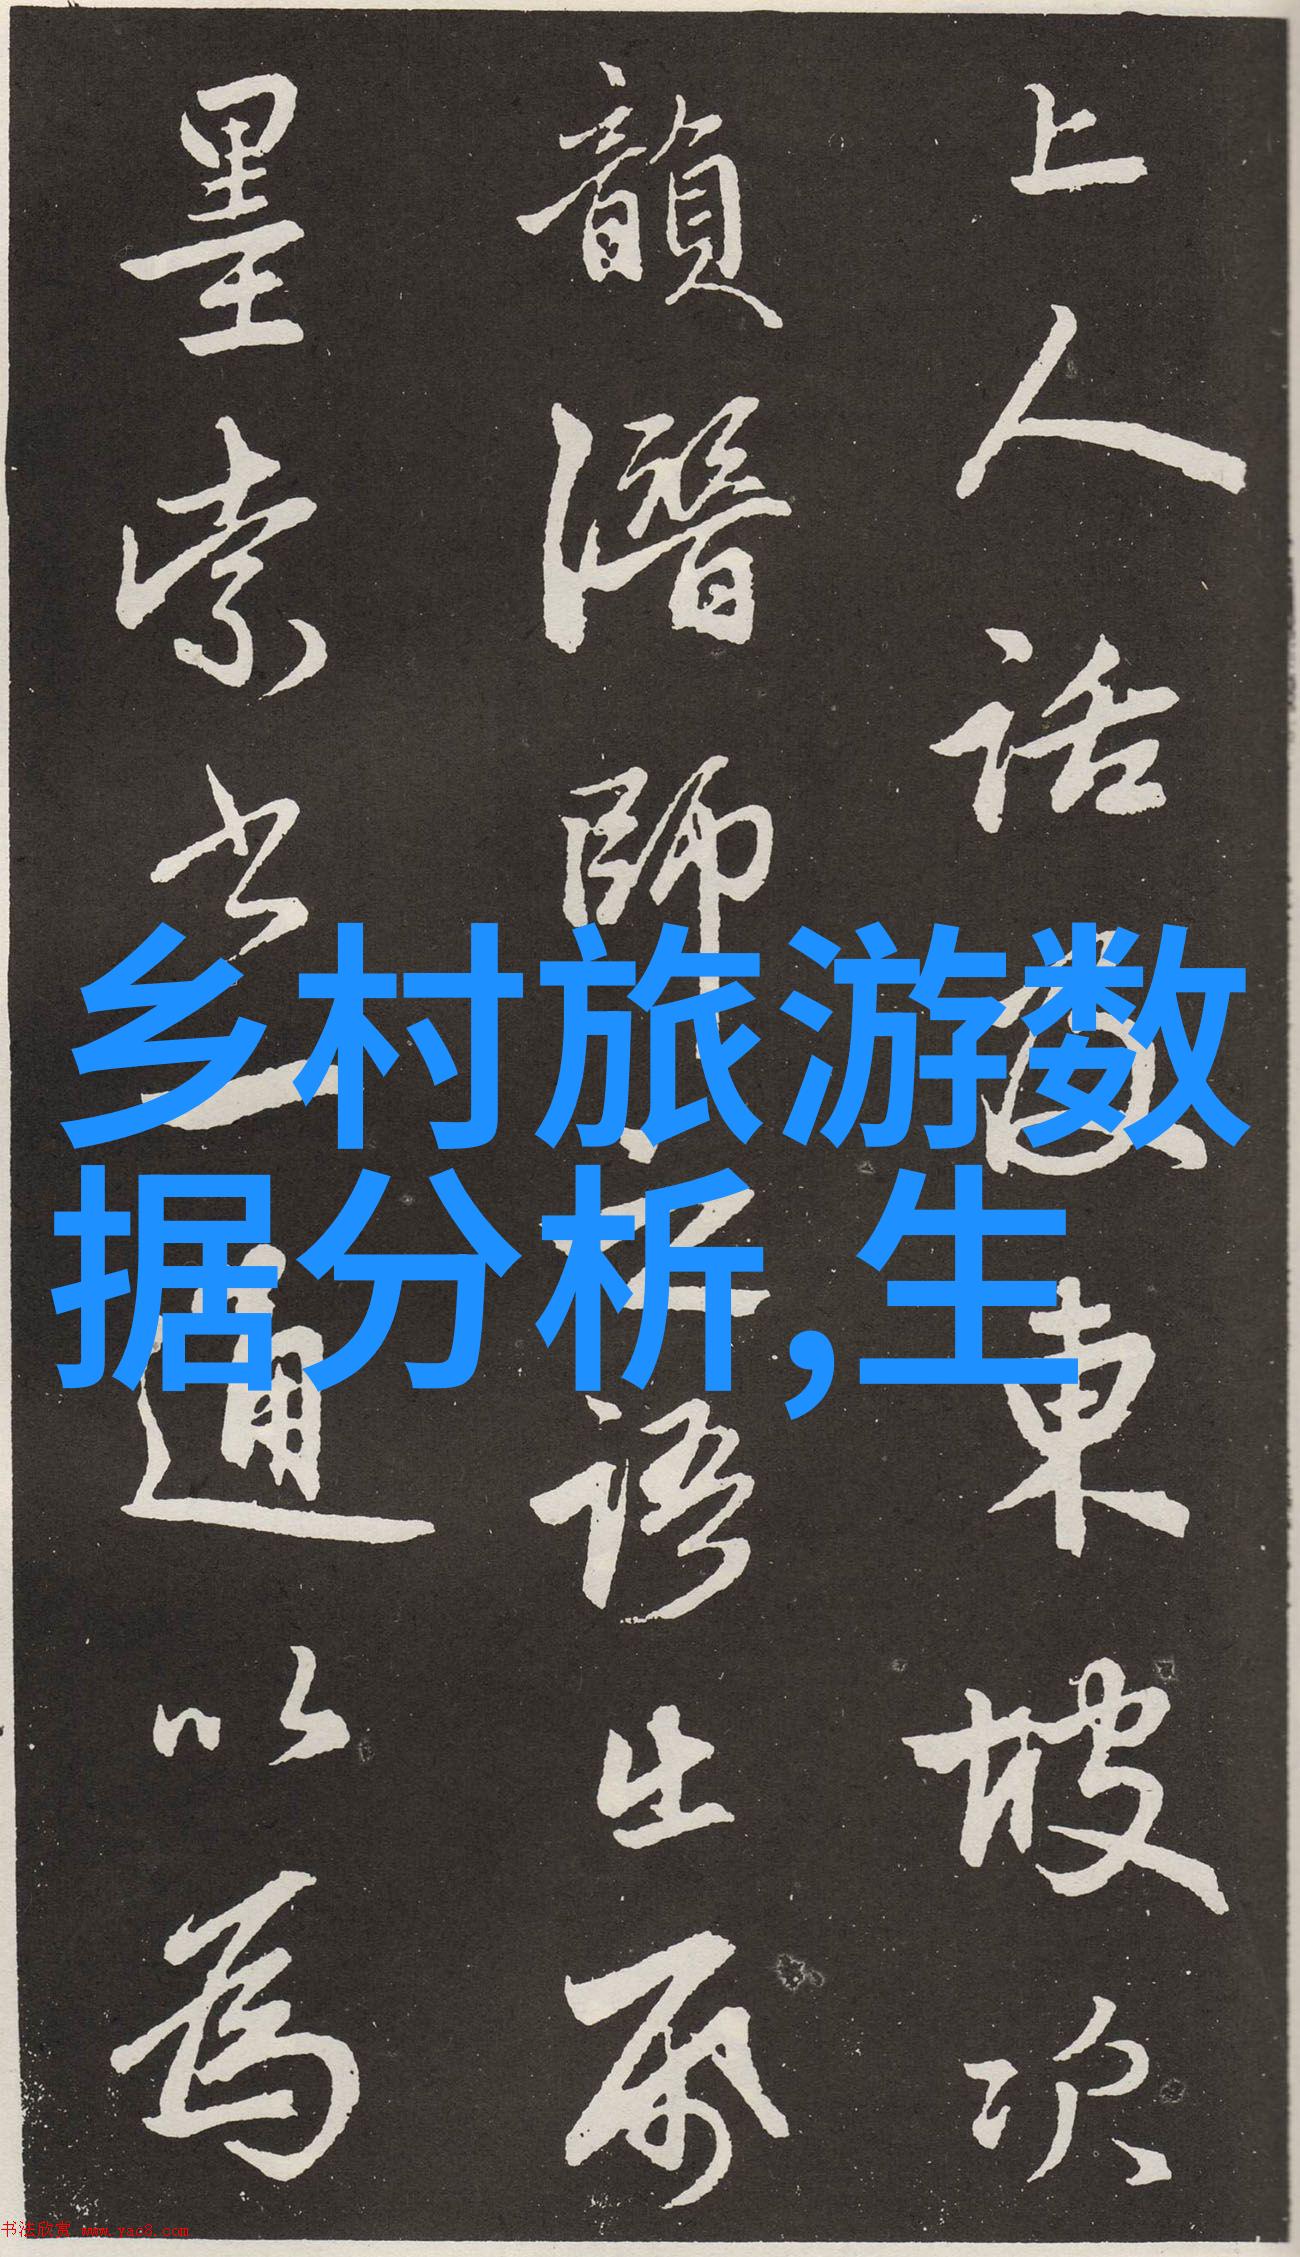 上人話及東坡次
韻潛師之語生
墨索書一通以為
乡村旅游数
据分析,生
书法欣赏 www.yac8.com